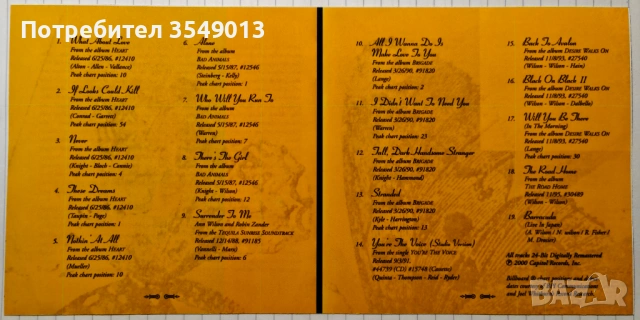 Потребител 3549013
1. What About Love
From the album HEART
Released 6/25/86, #12410
(Alton - Allen - Vallance)
Peak chart position: 10
2. If Looks Could Kill
From the album HEART
Released 6/25/86, #12410
(Conrad - Garrett)
Peak chart position: 54
3. Never
From the album HEART
Released 6/25/86, #12410
(Knight - Bloch - Connie)
Peak chart position: 4
4. These Dreams
From the album HEART
Released 6/25/86, #12410
(Taupin - Page)
Peak chart position: 1
5. Nothin At All
From the album HEART
Released 6/25/86, #12410
(Mueller)
Peak chart position: 10
6. Alone
From the album
BAD ANIMALS
Released 5/15/87, #12546
(Steinberg - Kelly)
Peak chart position: 1
7. Who Will You Run To
From the album
BAD ANIMALS
Released 5/15/87, #12546
(Warren)
Peak chart position: 7
8. There's The Girl
From the album
BAD ANIMALS
Released 5/15/87, #12546
(Knight - Wilson)
Peak chart position: 12
9. Surrender To Me
Ann Wilson and Robin Zander
From the TEQUILA SUNRISE SOUNDTRACK
Released 12/14/88, #91185
(Vannelli - Marx)
Peak chart position: 6
10. All I Wanna Do Is
Make Love To You
From the album BRIGADE
Released 3/26/90, #91820
(Lange)
Peak chart position: 2
11. I Didn't Want To Need You
From the album BRIGADE
Released 3/26/90, #91820
(Warren)
Peak chart position: 23
12. Tall, Dark Handsome Stranger
From the album BRIGADE
Released 3/26/90, #91820
(Knight - Hammond)
13. Stranded
From the album BRIGADE
Released 3/26/90, #91820
(Kyle - Harrington)
Peak chart position: 13
14. You're The Voice (Studio Version)
From the single YOU'RE THE VOICE
Released 9/3/91,
#44759 (CD) #15748 (Cassette)
(Quinta - Thompson - Reid - Ryder)
15. Back To Avalon
From the album DESIRE WALKS ON
Released 11/8/93, #27540
(Wilson - Wilson - Hain)
16. Black On Black II
From the album DESIRE WALKS ON
Released 11/8/93, #27540
(Wilson - Wilson - Dalbello)
17. Will You Be There
(In The Morning)
From the album DESIRE WALKS ON
Released 11/8/93, #27540
(Lange)
Peak chart position: 39
18. The Road Home
From the album
THE ROAD HOME
Released 8/1/95, #30489
(Wilson - Wilson)
19. Barracuda
(Live In Japan)
(A. Wilson / N. Wilson / R. Fisher /
M. Derosier)
All tracks 24-Bit Digitally Remastered
℗ 2000 Capitol Records, Inc.
Billboard
positions and
data courtesy BPI Communications
and Joel Whitburn's Record Research.
BAZAR